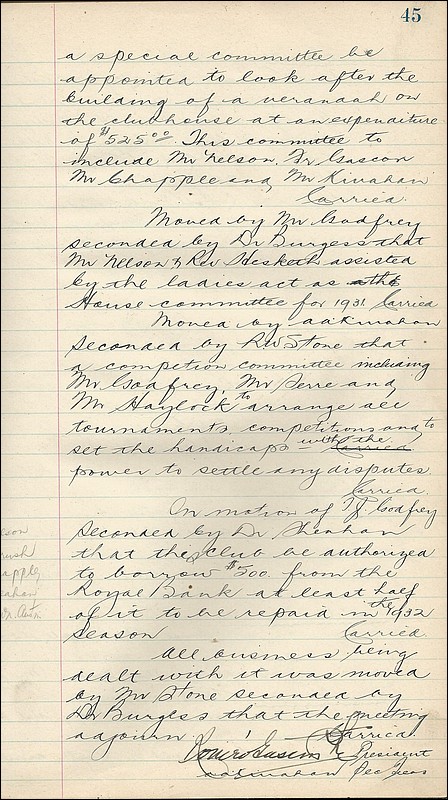 45
a special committee be
appointed to look after the
building of a verandah on
the clubhouse at an expenditure
of $525.00. This committee to
include Mr Nelson, Dr Gascon
Mr Chapple and Mr Kinahan
Carried.
Moved by Mr Godfrey
seconded by Dr Burgess that
Mr Nelson & Rev Hesketh assisted
by the ladies act as the
House committee for 1931 Carried
Moved by AA Kinahan
Seconded by RW Stone that
a competion committee including
Mr Godfrey, Mr Serre and
Mr Haylock to arrange all
tournaments competitions and to
set the handicaps with the Carried
power to settle any disputes
Carried.
On motion of Godfrey
Seconded by Dr Shenhan
that the club be authorized
to borrow $500. from the
Royal Bank at least half
of it to be repaid in the 1932
season Carried.
All business being
dealt with it was moved
by Mr Stone seconded by
Dr Burgess that the meeting
adjourn. Carried
President
Kinahan Sec Treas